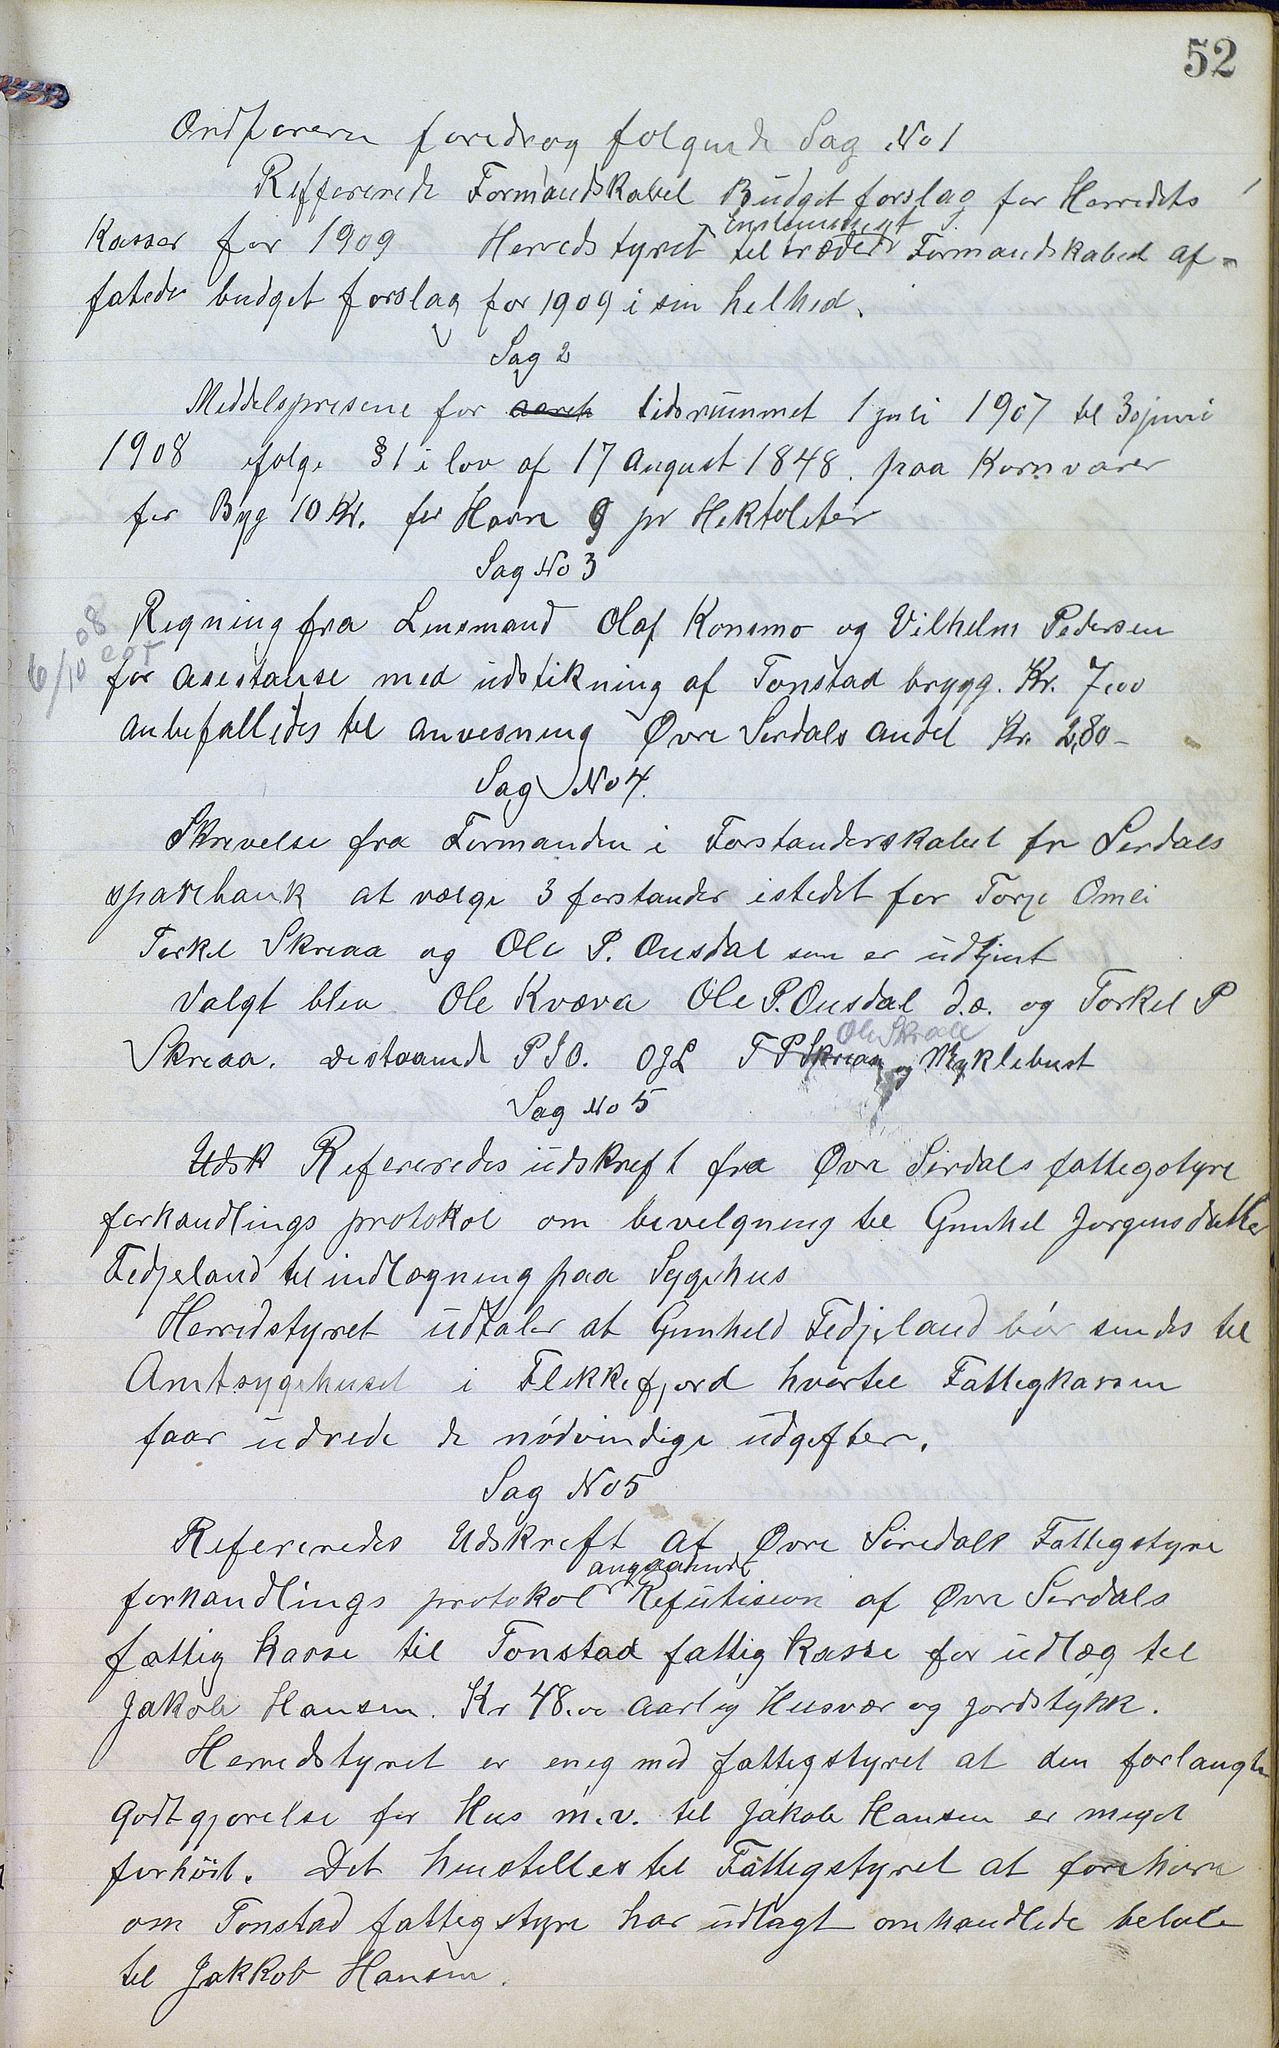 52
Ordføreren foredrog følgende Sag No 1
Refererede Formandskabet Budget forslag for Herredets
Kasser for 1909 Herredstyret enstemmigt til træder Formandskabets af-
fatede budget forslag for 1909 i sin helhed.
Sag 2
Middelsprisene for aaret tidsrummet 1 juli 1907 til 30 juni
1908 ifølge § 1 i lov af 17 August 1848. paa Kornvarer
for Byg 10 Kr. for Havre 9 pr Hektoliter
Sag No 3
Regning fra Lensmand Olaf Konsmo og Vilhelm Pedersen
6/10 08
for asestanse med udstikning af Tonstad brygg. Kr. 7,00
anbefalledes til anvesning Øvre Sirdals andel Kr. 2,80-
Sag No 4.
Skrivelse fra Formanden i Forstanderskabet for Sirdals
sparebank at vælge 3 forstander istedet for Torje Omli
Torkel Skreaa og Ole P. Ousdal som er udtjent
Valgt blev Ole Kvæva Ole P. Ousdal d.æ. og Torkel P
Skreaa. Distaaende P S O. O J L T P Skreaa Ole Skraa og Myklebust
Sag No 5
Udsk Refereredes udskrift fra Øvre Sirdals fattigstyre
forhandlings protokol om bevilgning til Gunhil Jørgensdatter
Fidjeland til indlægning paa Sygehus
Herredstyret udtaler at Gunhild Fidjeland bør sendes til
Amtsygehuset i Flekkefjord hvortil Fattigkassen
faar udrede de nødvindige udgifter.
Sag No 5
Refereredes Udskrift af Øvre Siredals Fattigstyre
forhandlings protokol angaaende Refutision af Øvre Sirdals
fattig kasse til Tonstad fattig kasse for udlæg til
Jakob Hansen. Kr 48.00 aarlig Husvær og jordstykk.
Herredstyret er enig med fattigstyret at den forlangte
godtgjørelse for Hus m.v. til Jakob Hansen er meget
forhøit. Det henstilles til Fattigstyret at forehøre
om Tonstad fattigstyre har udlagt omhandlede beløb
til Jakkob Hansen.